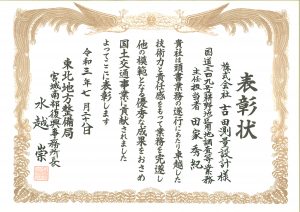 表彰状
株式会社 吉田測量設計様
国道三四九号藤野地区用地調査等業務
主任担当者 田家秀紀
貴社は頭書業務の遂行にあたり卓越した
技術力と責任感をもって業務を完遂し
他の模範となる優秀な成果をおさめ
国土交通事業に貢献されました
よってここに表彰します
令和三年七月二十日
東北地方整備局
宮城南部復興事務所長
水越崇